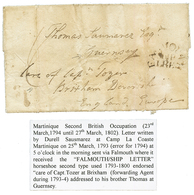 Thomas Saumarez Esqr
Guernsey
care of Capt Tozer
Brixham Devon
England Europe
Martinique Second British Occupation (23rd
March,1794 until 27th March, 1802) Letter written
by Durell Sausmarez at Camp La Coste
Martinique on 25th March, 1793 (error for 1794) at
5 o'clock in the morning sent via Falmouth where it
received the "FALMOUTH/SHIP LETTER"
horseshoe second type used 1793-1800 endorsed
"care of Capt Tozer at Brixham (forwarding Agent
during 1793-4) addressed to his brother Thomas at
Guernsey.